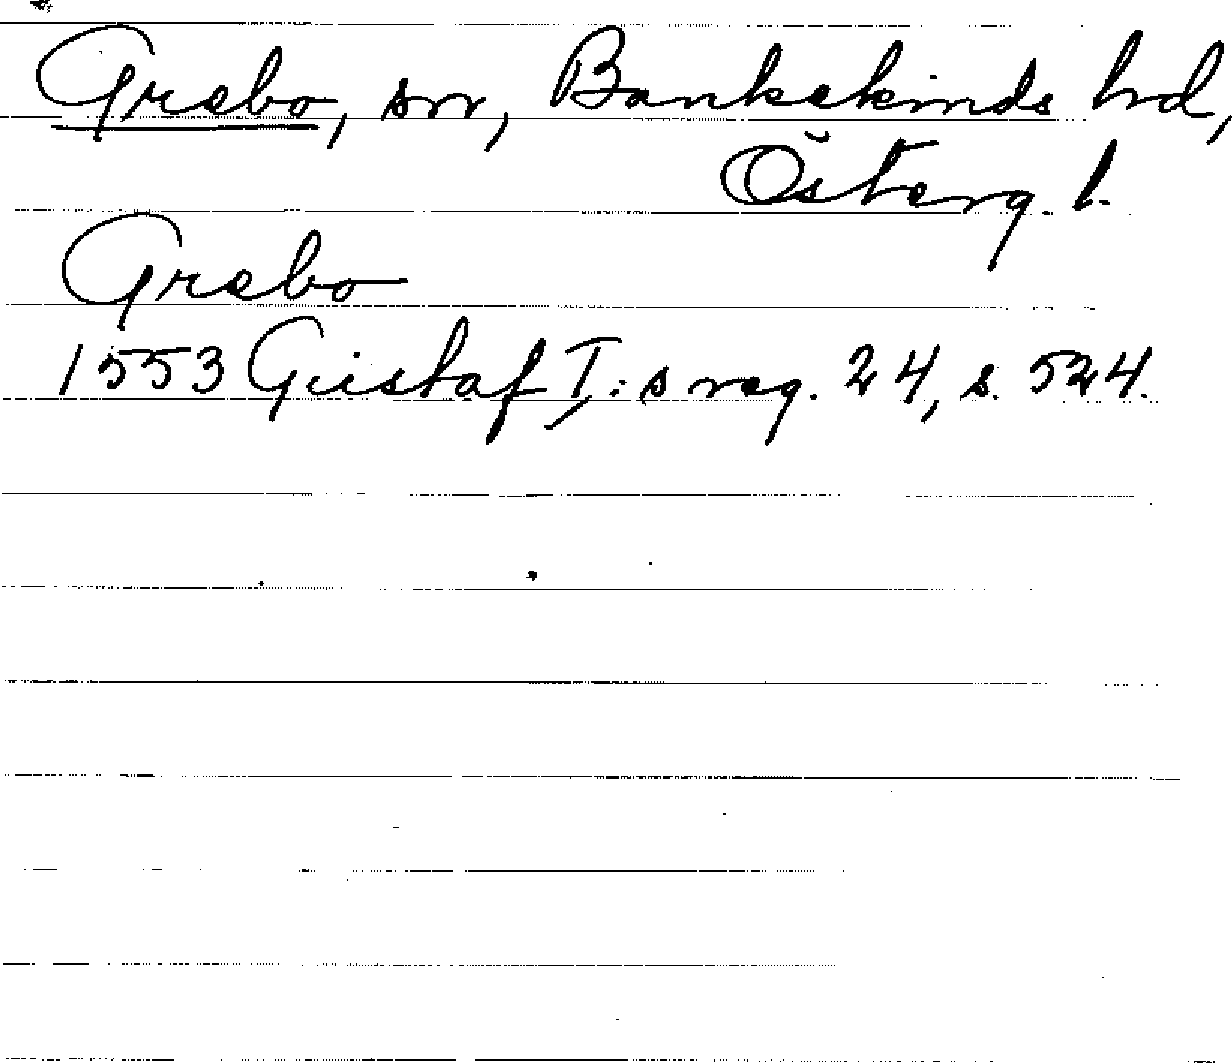 Grebo, sn, Bankekinds hd,
Österg. l.
Grebo
1553 Gustaf I:s reg. 24, s. 524.